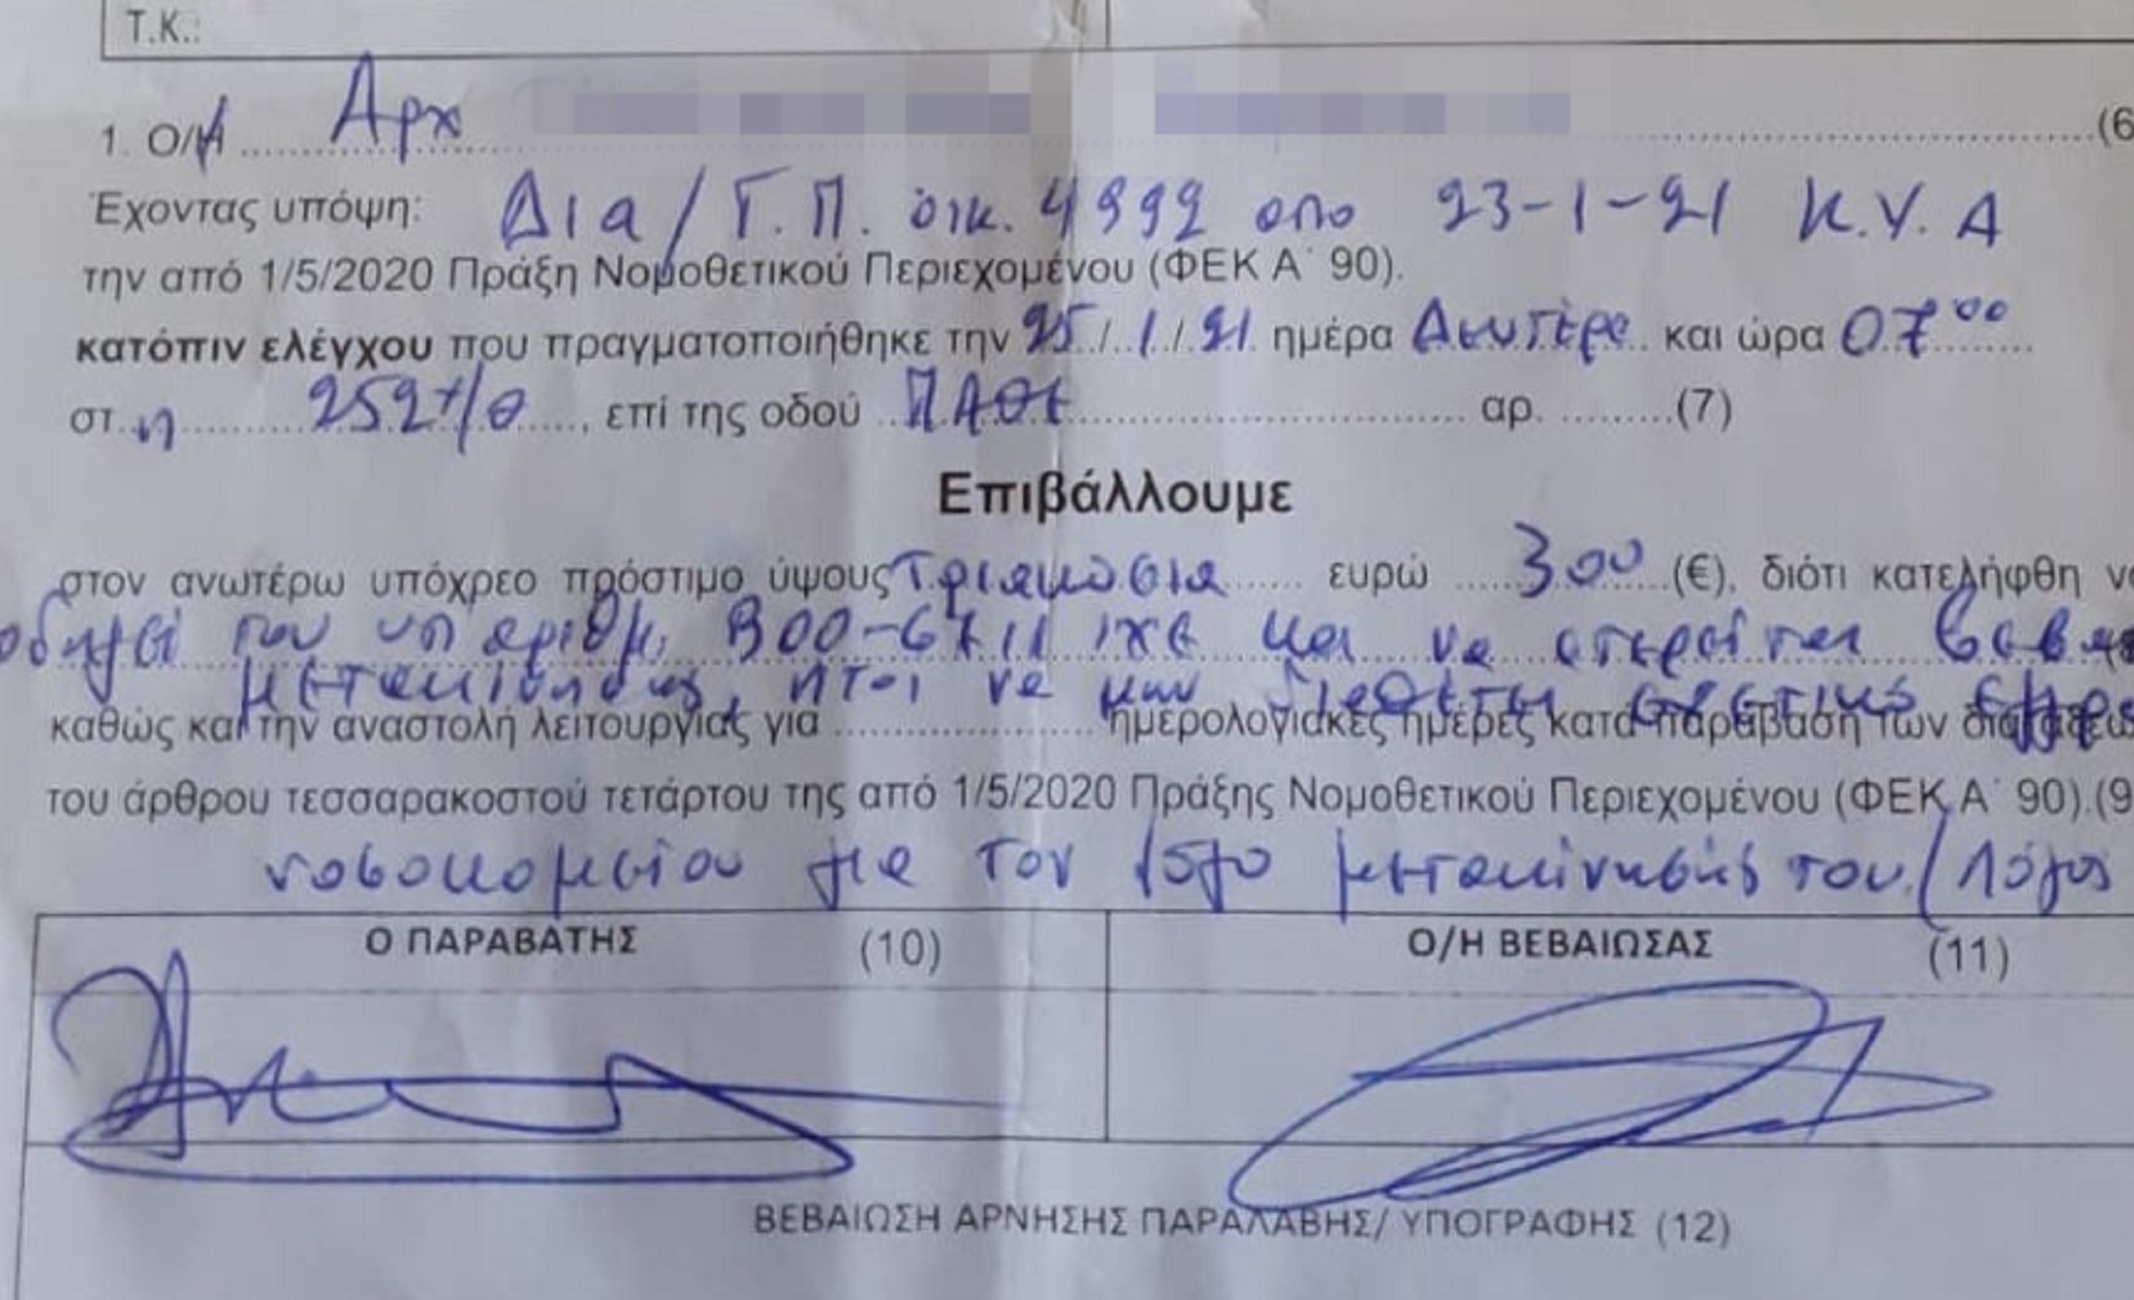 Τ.Κ.:
1. Ο/Η Αρχ (6
Έχοντας υπόψη: Δ1α/Γ.Π. οικ. 4992 απο 23-1-21 Κ.Υ.Α
την από 1/5/2020 Πράξη Νομοθετικού Περιεχομένου (ΦΕΚ Α΄ 90).
κατόπιν ελέγχου που πραγματοποιήθηκε την 25/1/21 ημέρα Δευτέρα και ώρα 07⁰⁰
στ η 252 χ/θ, επί της οδού ΠΑΘΕ αρ. (7)
Επιβάλλουμε
στον ανωτέρω υπόχρεο πρόστιμο ύψους Τριακόσια ευρώ 300 (€), διότι κατελήφθη να
οδηγεί του υπ αριθμ. ΙΧΕ και να στερείται
μετακίνησης, ήτοι να μην διαθέτει σχετικό
καθώς και την αναστολή λειτουργίας για ημερολογιακές ημέρες κατά παράβαση των διατάξεω
του άρθρου τεσσαρακοστού τετάρτου της από 1/5/2020 Πράξης Νομοθετικού Περιεχομένου (ΦΕΚ Α΄ 90).(9
νοσοκομείου για τον λόγο μετακίνησής του. (Λόγος
Ο ΠΑΡΑΒΑΤΗΣ (10) Ο/Η ΒΕΒΑΙΩΣΑΣ (11)
ΒΕΒΑΙΩΣΗ ΑΡΝΗΣΗΣ ΠΑΡΑΛΑΒΗΣ/ ΥΠΟΓΡΑΦΗΣ (12)